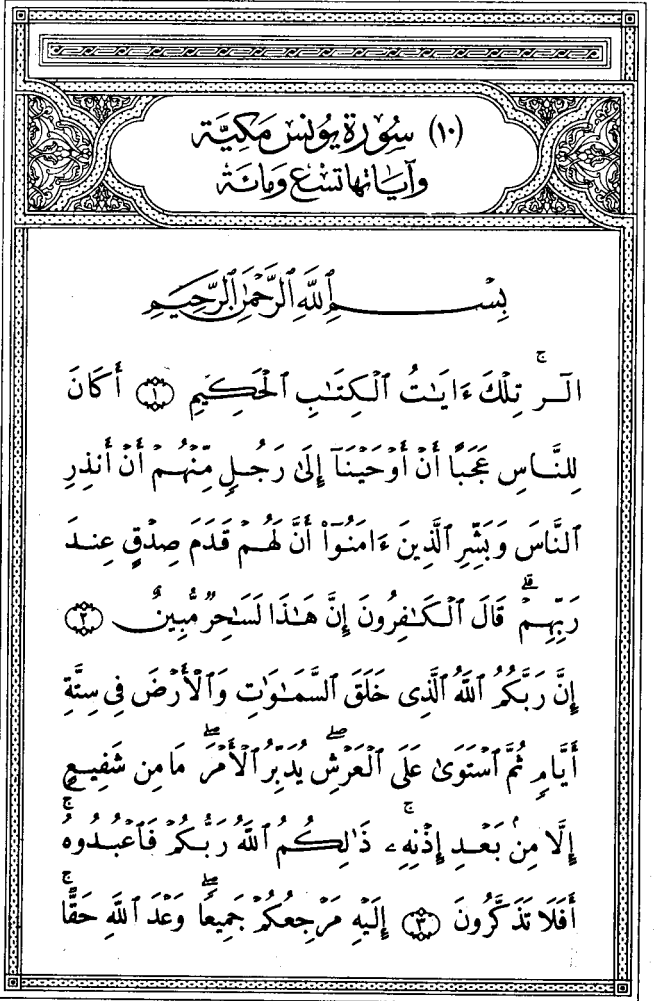 (١٠) سُورَة يُونس مَكِيَّة
وَآيَاتهَا تِسْع وَمِائَة
بِسْمِ ٱللَّهِ ٱلرَّحْمَٰنِ ٱلرَّحِيمِ
الٓر ۚ تِلْكَ ءَايَٰتُ ٱلْكِتَٰبِ ٱلْحَكِيمِ ﴿١﴾ أَكَانَ
لِلنَّاسِ عَجَبًا أَنْ أَوْحَيْنَآ إِلَىٰ رَجُلٍ مِّنْهُمْ أَنْ أَنذِرِ
ٱلنَّاسَ وَبَشِّرِ ٱلَّذِينَ ءَامَنُوٓاْ أَنَّ لَهُمْ قَدَمَ صِدْقٍ عِندَ
رَبِّهِمْ ۗ قَالَ ٱلْكَٰفِرُونَ إِنَّ هَٰذَا لَسَٰحِرٌ مُّبِينٌ ﴿٢﴾
إِنَّ رَبَّكُمُ ٱللَّهُ ٱلَّذِى خَلَقَ ٱلسَّمَٰوَٰتِ وَٱلْأَرْضَ فِى سِتَّةِ
أَيَّامٍ ثُمَّ ٱسْتَوَىٰ عَلَى ٱلْعَرْشِ ۖ يُدَبِّرُ ٱلْأَمْرَ ۖ مَا مِن شَفِيعٍ
إِلَّا مِنۢ بَعْدِ إِذْنِهِۦ ۚ ذَٰلِكُمُ ٱللَّهُ رَبُّكُمْ فَٱعْبُدُوهُ ۚ
أَفَلَا تَذَكَّرُونَ ﴿٣﴾ إِلَيْهِ مَرْجِعُكُمْ جَمِيعًا ۖ وَعْدَ ٱللَّهِ حَقًّا ۚ